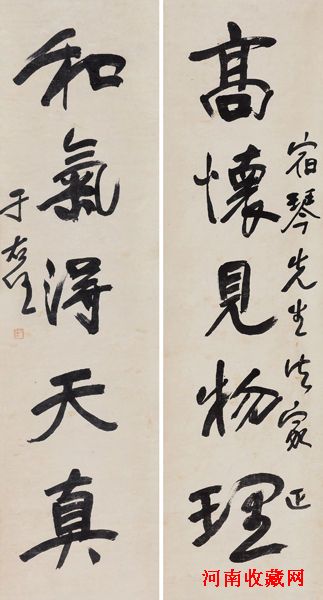 宿琴先生法家正
高懷見物理
和氣得天真
于右任
河南收藏网